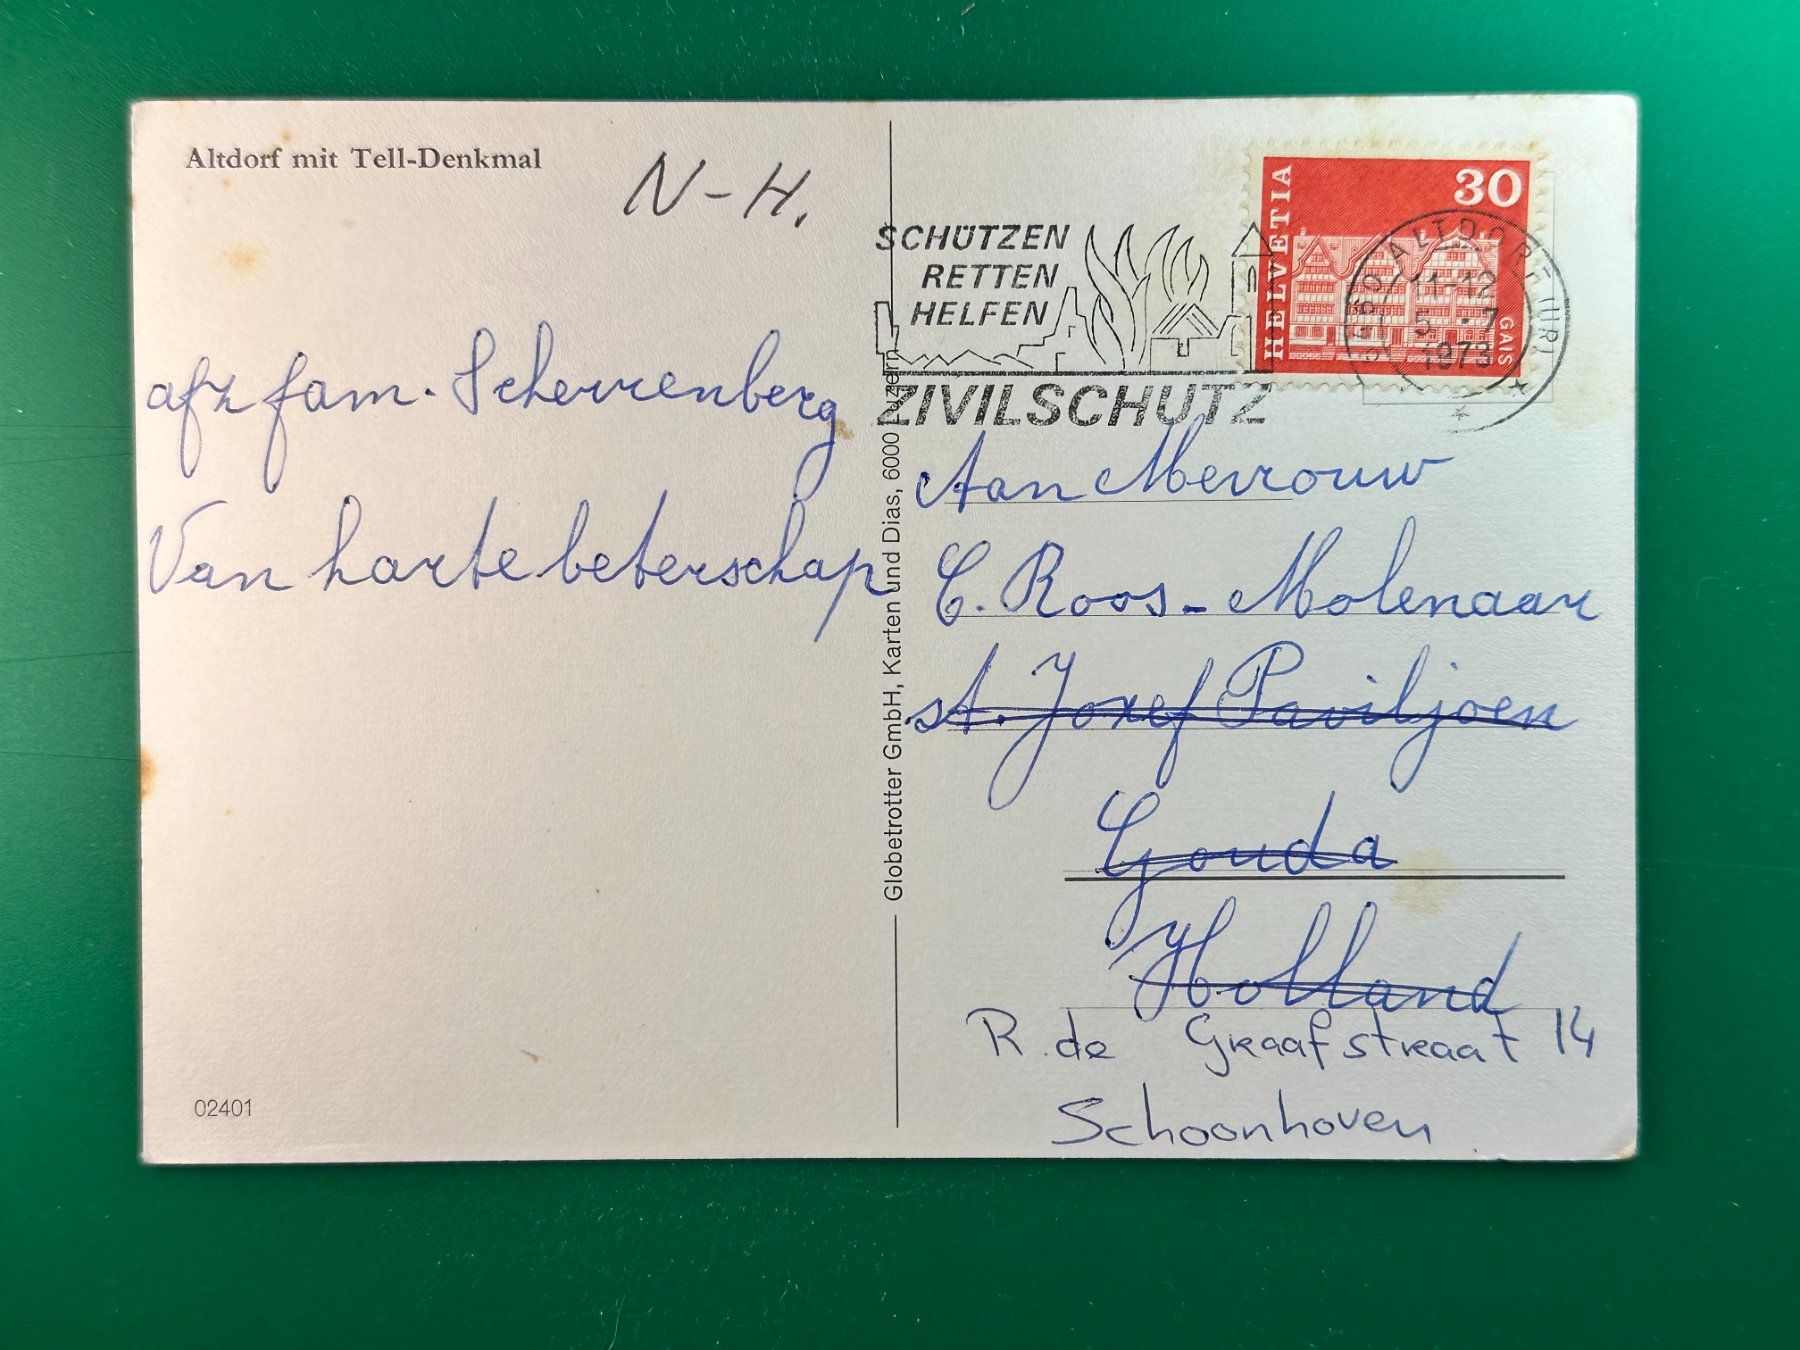 Altdorf mit Tell-Denkmal
N-H.
afz fam. Scherrenberg
Van harte beterschap
02401
Globetrotter GmbH, Karten und Dias, 6000 Luzern
SCHÜTZEN
RETTEN
HELFEN
ZIVILSCHUTZ
HELVETIA
30
GAIS
6460 ALTDORF (URI)
11-12
5.-7
1973
Aan Mevrouw
C. Roos-Molenaar
st. Jozef Paviljoen
Gouda
Holland
R. de Graafstraat 14
Schoonhoven